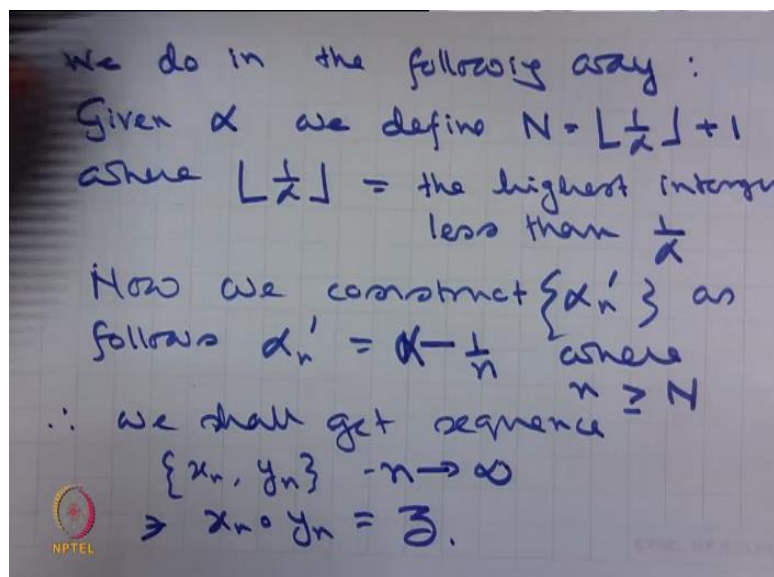 We do in the following way :
Given α we define N = ⌊1/α⌋ + 1
where ⌊1/α⌋ = the highest interger
less than 1/α
Now we construct {αₙ'} as
follows αₙ' = α - 1/n where
n ≥ N
∴ we shall get sequence
{xₙ, yₙ} -n → ∞
∋ xₙ ∘ yₙ = z.
NPTEL